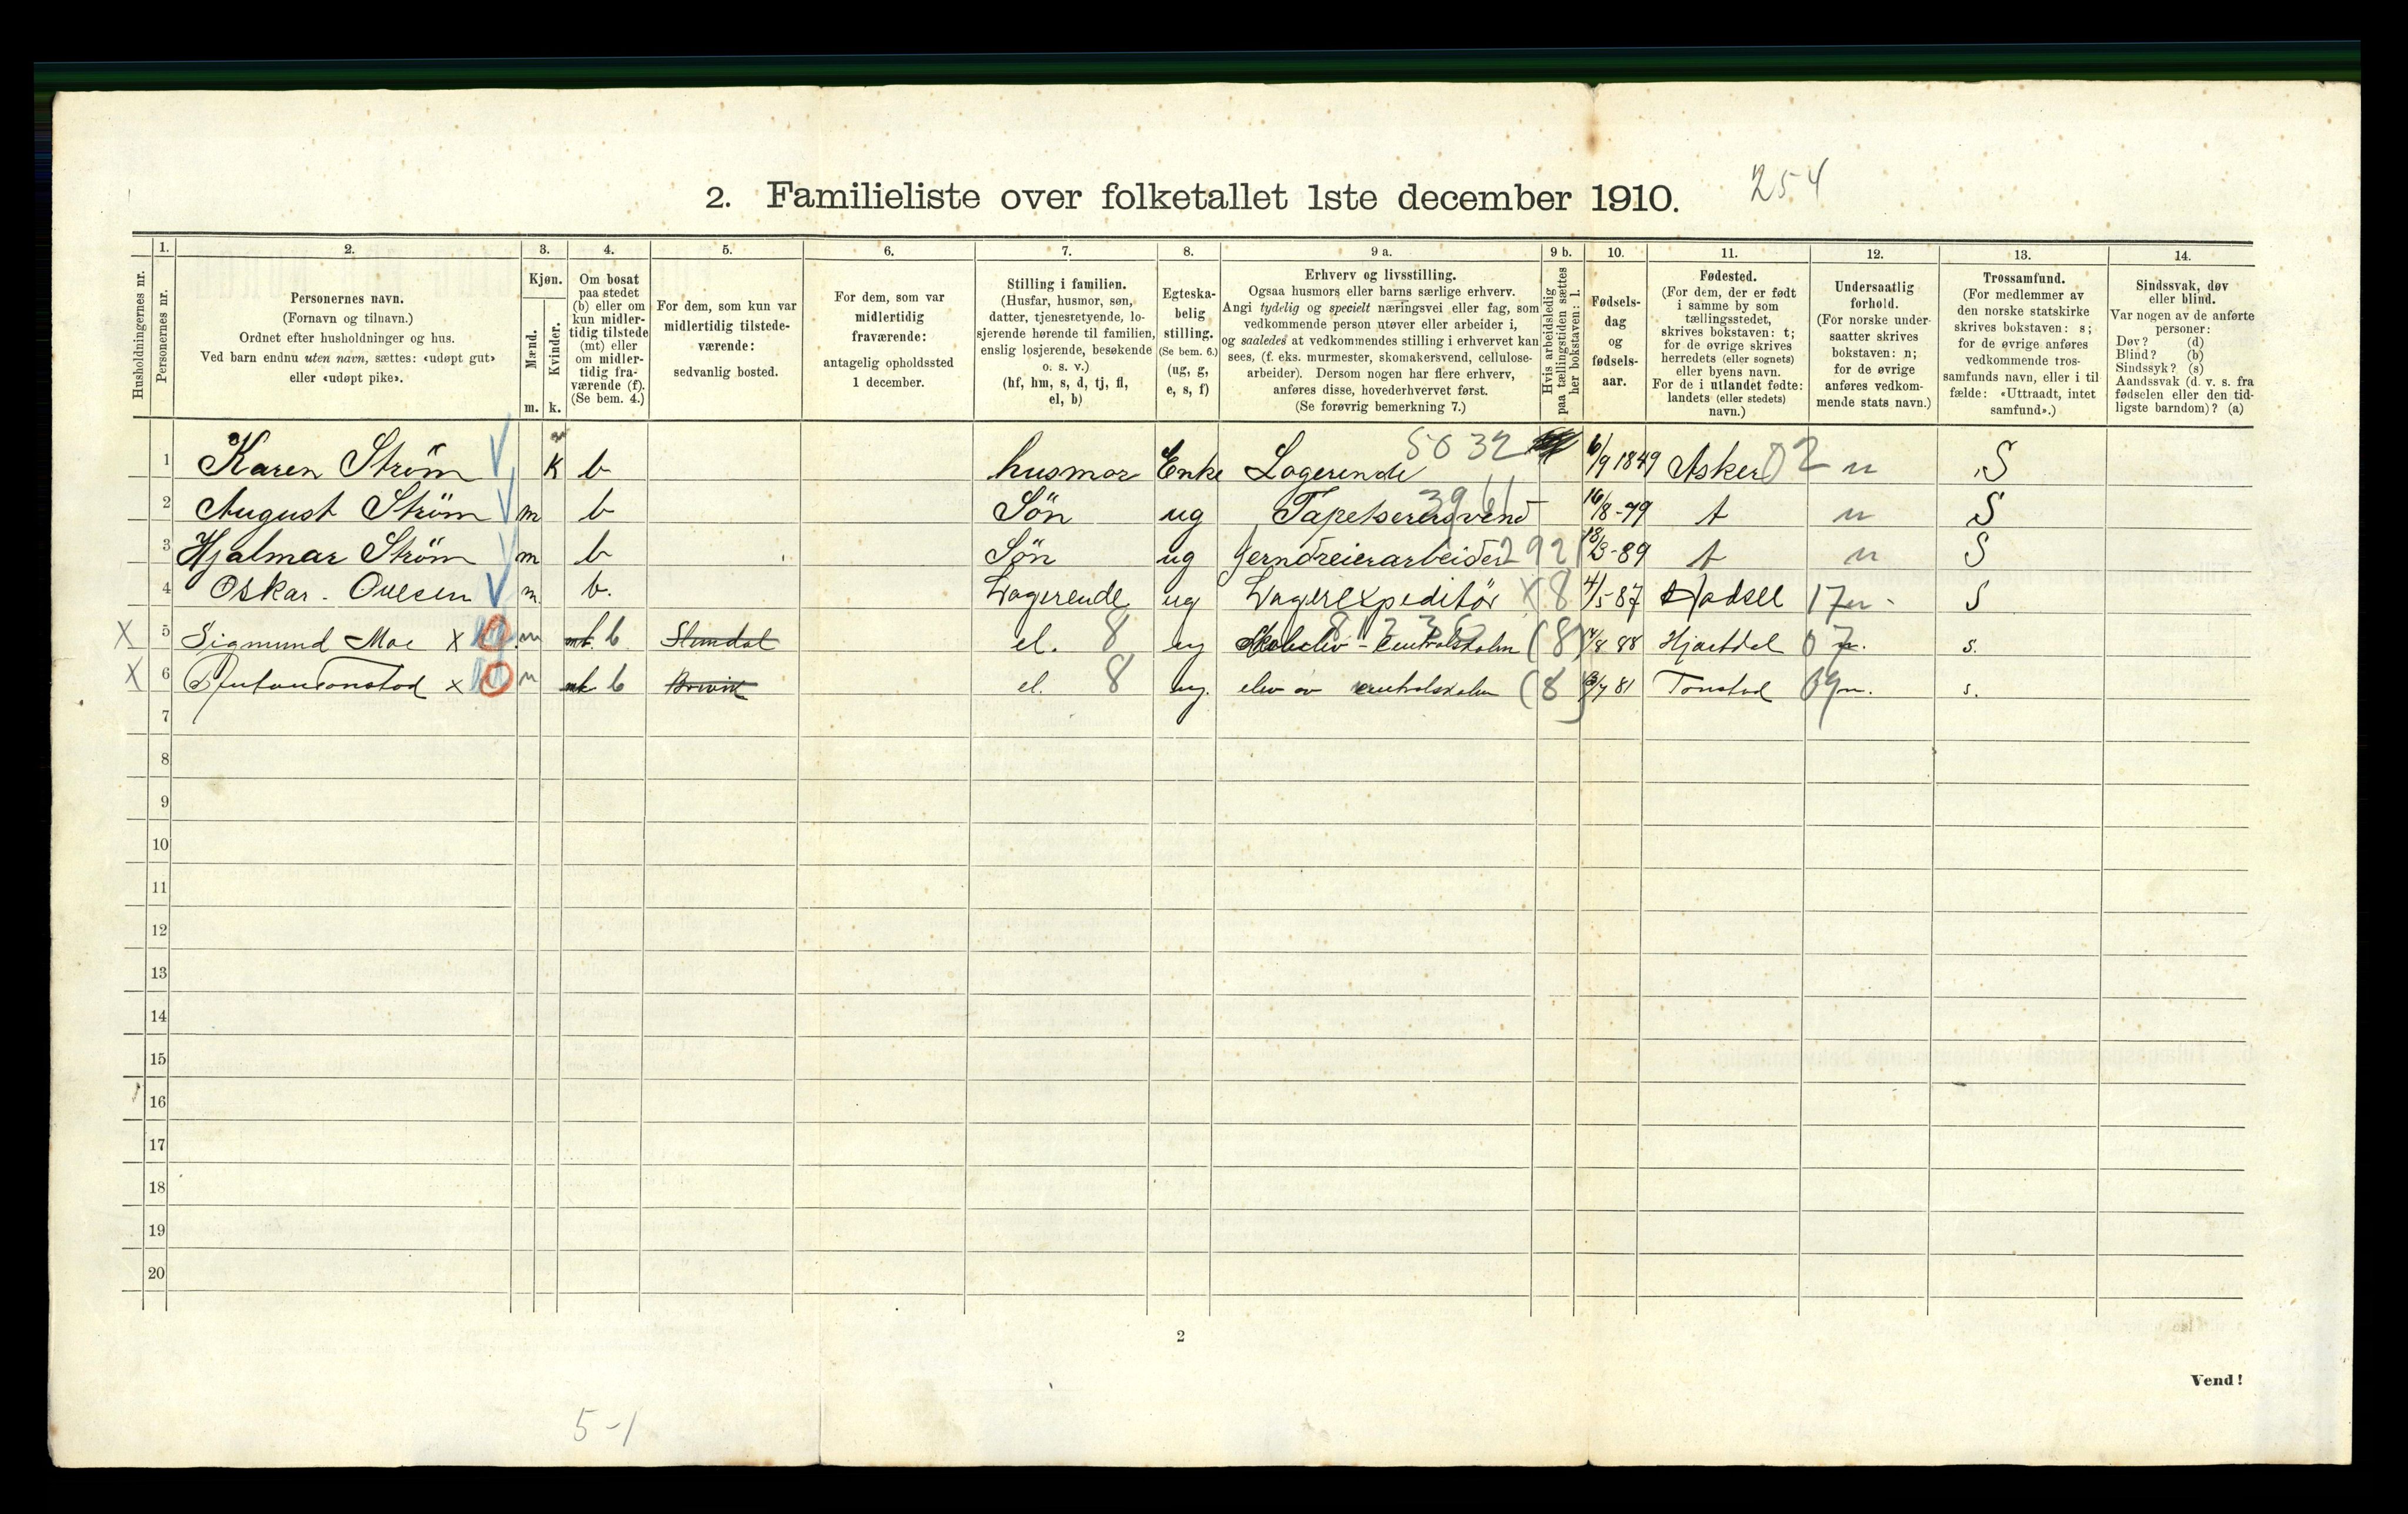 2. Familieliste over folketallet 1ste december 1910. 254
1. 2. 3. 4. 5. 6. 7. 8. 9 a. 9 b. 10. 11. 12. 13. 14.
Husholdningernes nr.
Personernes nr.
Personernes navn.
(Fornavn og tilnavn.)
Ordnet efter husholdninger og hus.
Ved barn endnu uten navn, sættes: «udøpt gut»
eller «udøpt pike».
Kjøn.
Mænd.
Kvinder.
m. k.
Om bosat
paa stedet
(b) eller om
kun midler-
tidig tilstede
(mt) eller
om midler-
tidig fra-
værende (f).
(Se bem. 4.)
For dem, som kun var
midlertidig tilstede-
værende:
sedvanlig bosted.
For dem, som var
midlertidig
fraværende:
antagelig opholdssted
1 december.
Stilling i familien.
(Husfar, husmor, søn,
datter, tjenestetyende, lo-
sjerende hørende til familien,
enslig losjerende, besøkende
o. s. v.)
(hf, hm, s, d, tj, fl,
el, b)
Egteska-
belig
stilling.
(Se bem. 6.)
(ug, g,
e, s, f)
Erhverv og livsstilling.
Ogsaa husmors eller barns særlige erhverv.
Angi tydelig og specielt næringsvei eller fag, som
vedkommende person utøver eller arbeider i,
og saaledes at vedkommendes stilling i erhvervet kan
sees, (f. eks. murmester, skomakersvend, cellulose-
arbeider). Dersom nogen har flere erhverv,
anføres disse, hovederhvervet først.
(Se forøvrig bemerkning 7.)
Hvis arbeidsledig
paa tællingstiden sættes
her bokstaven: l.
Fødsels-
dag
og
fødsels-
aar.
Fødested.
(For dem, der er født
i samme by som
tællingsstedet,
skrives bokstaven: t;
for de øvrige skrives
herredets (eller sognets)
eller byens navn.
For de i utlandet fødte:
landets (eller stedets)
navn.)
Undersaatlig
forhold.
(For norske under-
saatter skrives
bokstaven: n;
for de øvrige
anføres vedkom-
mende stats navn.)
Trossamfund.
(For medlemmer av
den norske statskirke
skrives bokstaven: s;
for de øvrige anføres
vedkommende tros-
samfunds navn, eller i til
fælde: «Uttraadt, intet
samfund».)
Sindssvak, døv
eller blind.
Var nogen av de anførte
personer:
Døv? (d)
Blind? (b)
Sindssyk? (s)
Aandssvak (d. v. s. fra
fødselen eller den tid-
ligste barndom)? (a)
1 Karen Ström K b husmor Enke Logerende 5032 6/9 1849 Asker 02 n S
2 August Ström m b Sön ug Tapetserersvend 3961 16/8-79 t n S
3 Hjalmar Ström m b Sön ug Jerndreierarbeider 2921 -89 t n S
4 Oskar Ovesen m. b. Logerende ug Lagerexpeditör X 8 4/5-87 Hadsel 17 n - S
X 5 Sigmund Moe X m mt b el. 8 ug - Centralskolen (8) /8 88 Hjartdal 07 n. s.
X 6 Tonstad X m mt b el. 8 ug. elev av centralskolen (8) /7 81 Tonstad 09 n. s.
7
8
9
10
11
12
13
14
15
16
17
18
19
20
2
Vend!
5-1